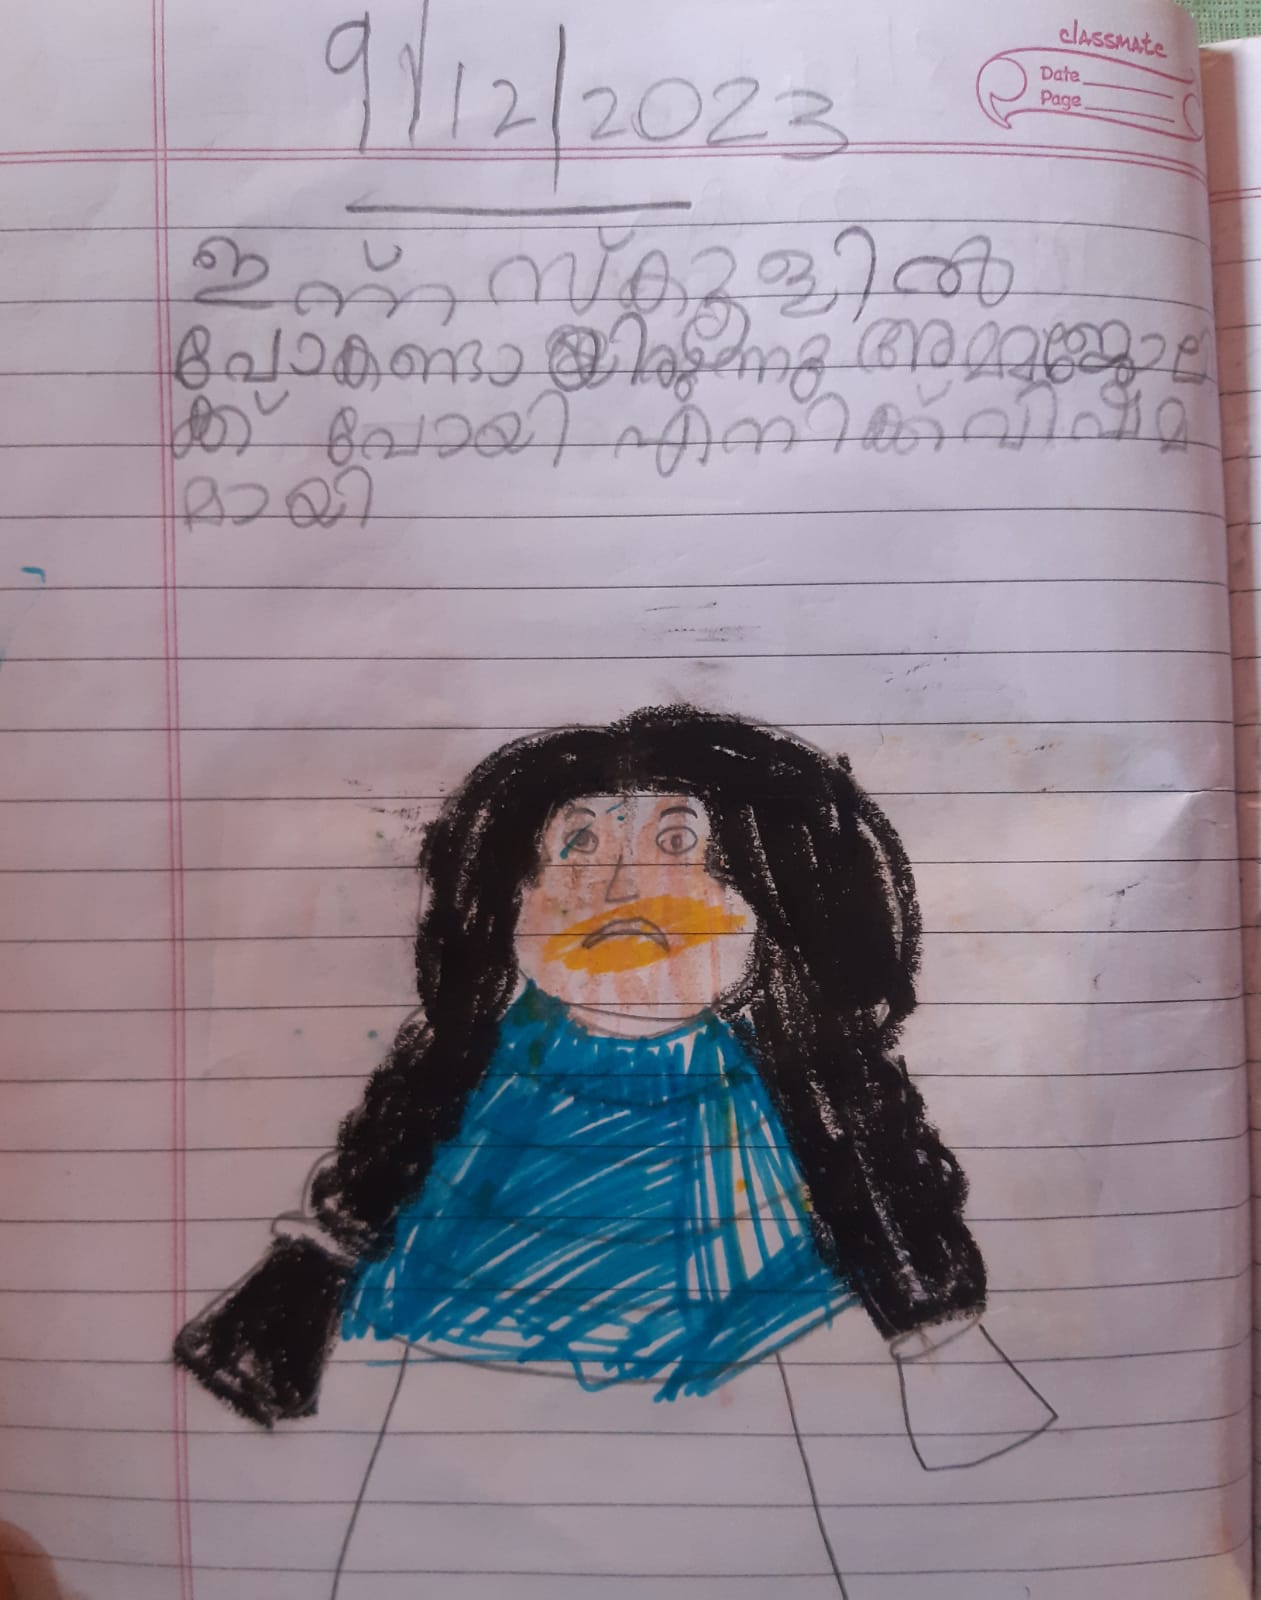 9/12/2023
classmate
Date
Page
ഇന്ന് സ്കൂളിൽ
പോകണ്ടാ യിരുന്നു അമ്മജോല
ക്ക് പോയി എനിക്ക് വിഷമ
മായി